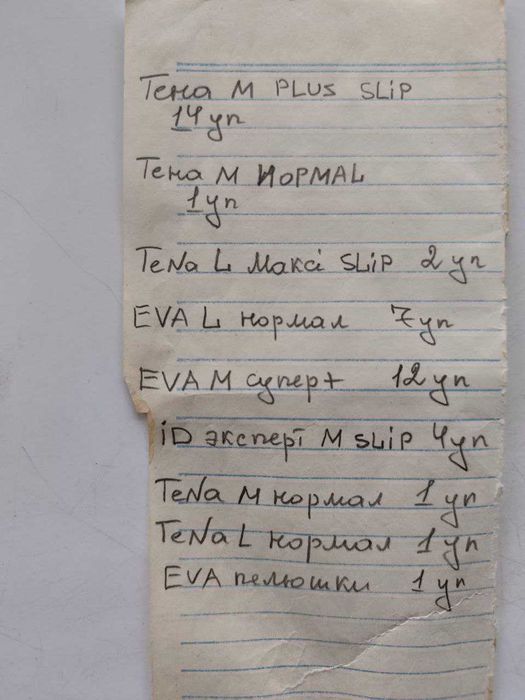 Тена M PLUS SLiP
14уп
Тена М НОРМАL
1уп
TeNa L Максі SLiP 2уп
EVA L нормал 7уп
EVA M супер+ 12уп
iD эксперт M SLiP 4уп
TeNa M нормал 1уп
TeNa L нормал 1уп
EVA пелюшки 1уп